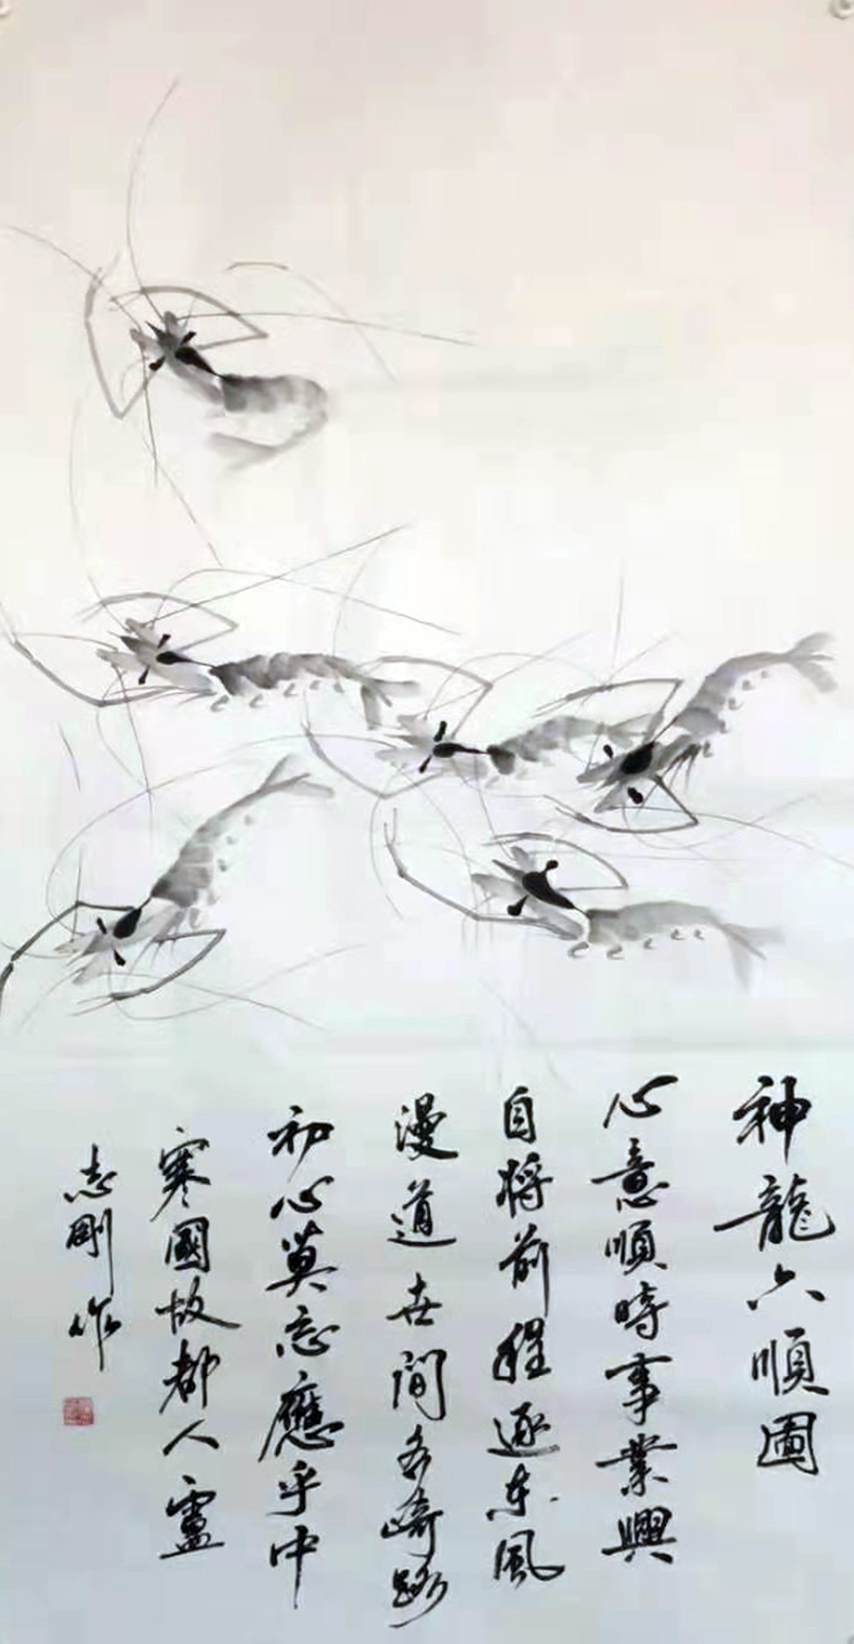 神龍六順圖
心意順時事業興
自將前程逐东風
漫道世间多崎路
初心莫忘應乎中
寒國故都人
志剛作